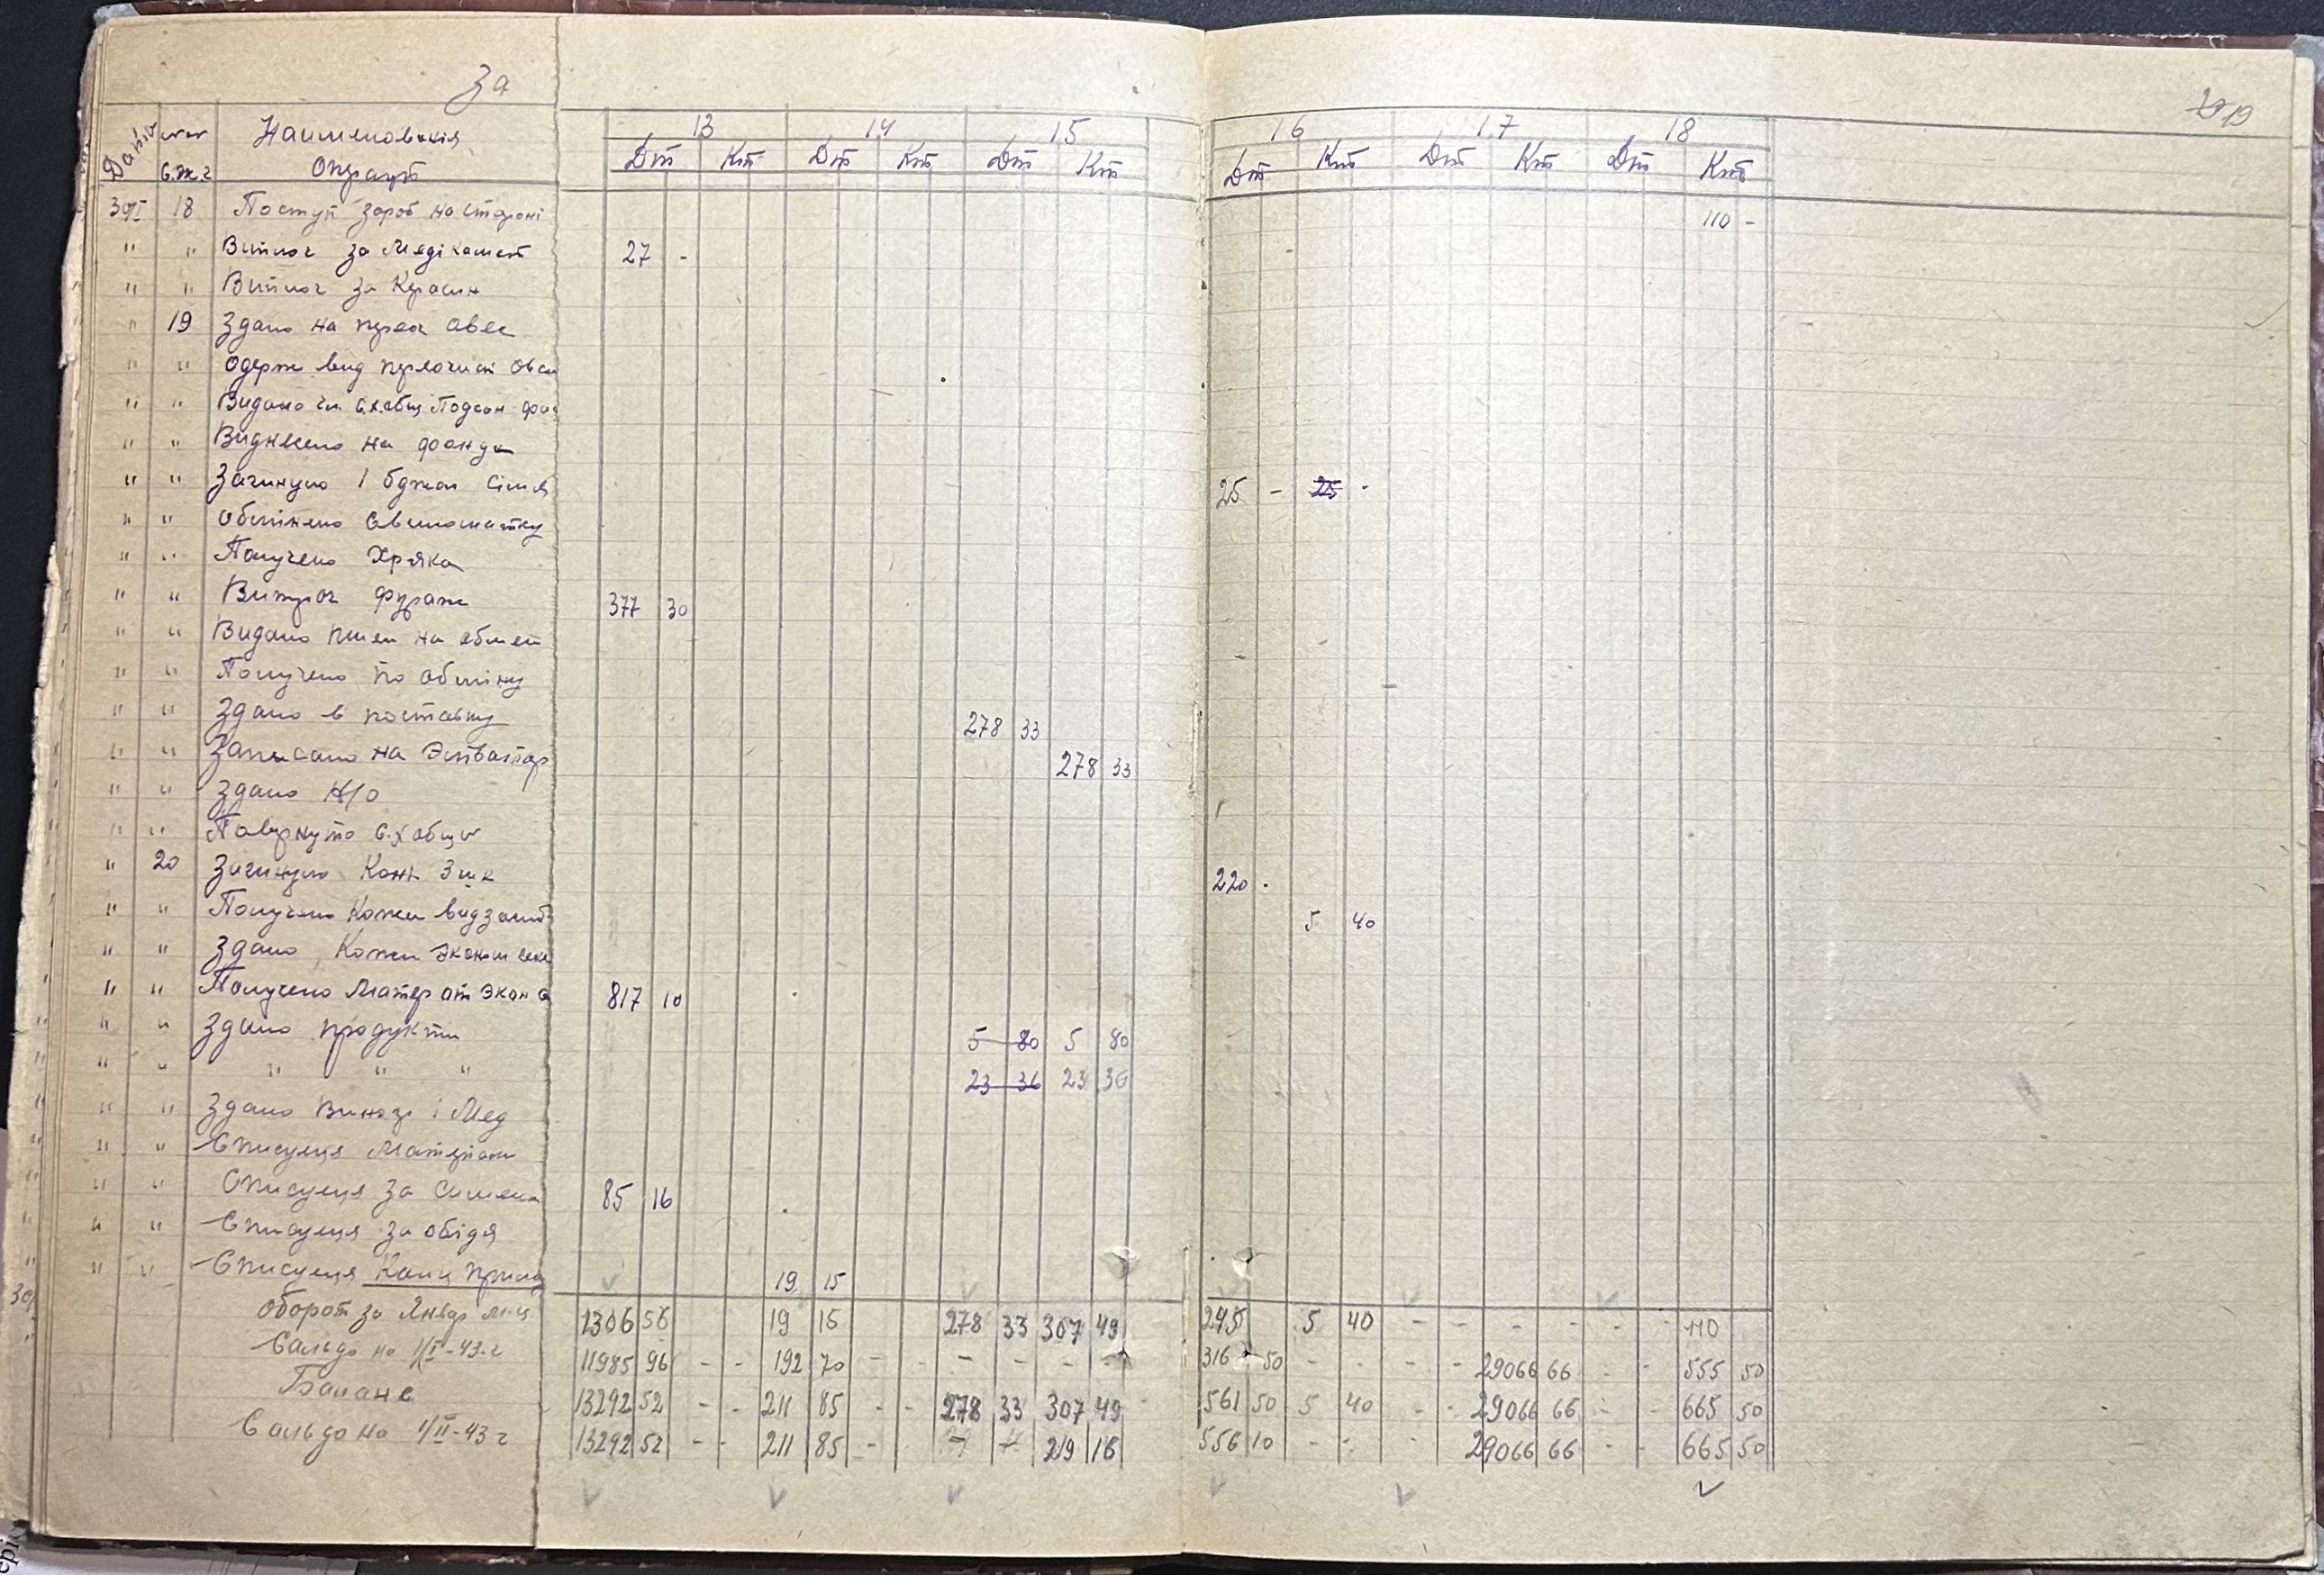 За
19
13 14 15 16 17 18
Дати №№ Наименованія
с.ж.г Операцій
Дт Кт Дт Кт Дт Кт Дт Кт Дт Кт Дт Кт
30/I 18 Поступ зароб на стороні 110 -
" " Виплач за Медікамент 27 -
" " Виплач за Керасин
" 19 Здано на перео овес
" " Одерж вид переочист Овса
" " Видано чл. с.х.общ Подсон
" " Виднесено на фонди
" " Загинуло 1 бджол сімя 25 - 25 -
" " Обмінено Свиноматку
" " Получено Хряка
" " Витрач фураж 377 30
" " Видано пшен на обмен
" " Получено по обміну
" " Здано в поставку 278 33
" " Записано на Элеватор 278 33
" " Здано Н/о
" " Павернуто с.х общи
" 20 Загинуло Конь 3 шк 220 -
" " Получено Кожи вид 5 40
" " Здано Кожи Эконом
" " Получено Матер от Экон с 817 10
" " Здано продукти 5 80 5 80
" " " " " 23 36 23 36
" " Здано Виногр і Мед
" " Списуеця Матеріали
" " Списуеця за 85 16
" " Списуеця за обідя
" " Списуеця Канц Прина 19 15
Оборот за Январ м-ц. 1306 56 19 15 278 33 307 49 245 5 40 - - - - - - 110
Сальдо на 1/I-43-г 11985 96 - - 192 70 - - - - - - 316 50 - - - - 29066 66 - - 555 50
Баланс 13292 52 - - 211 85 - - 278 33 307 49 561 50 5 40 - - 29066 66 - - 665 50
Сальдо на 1/II-43 г 13292 52 - - 211 85 - - - 29 16 556 10 - - - 29066 66 - - 665 50